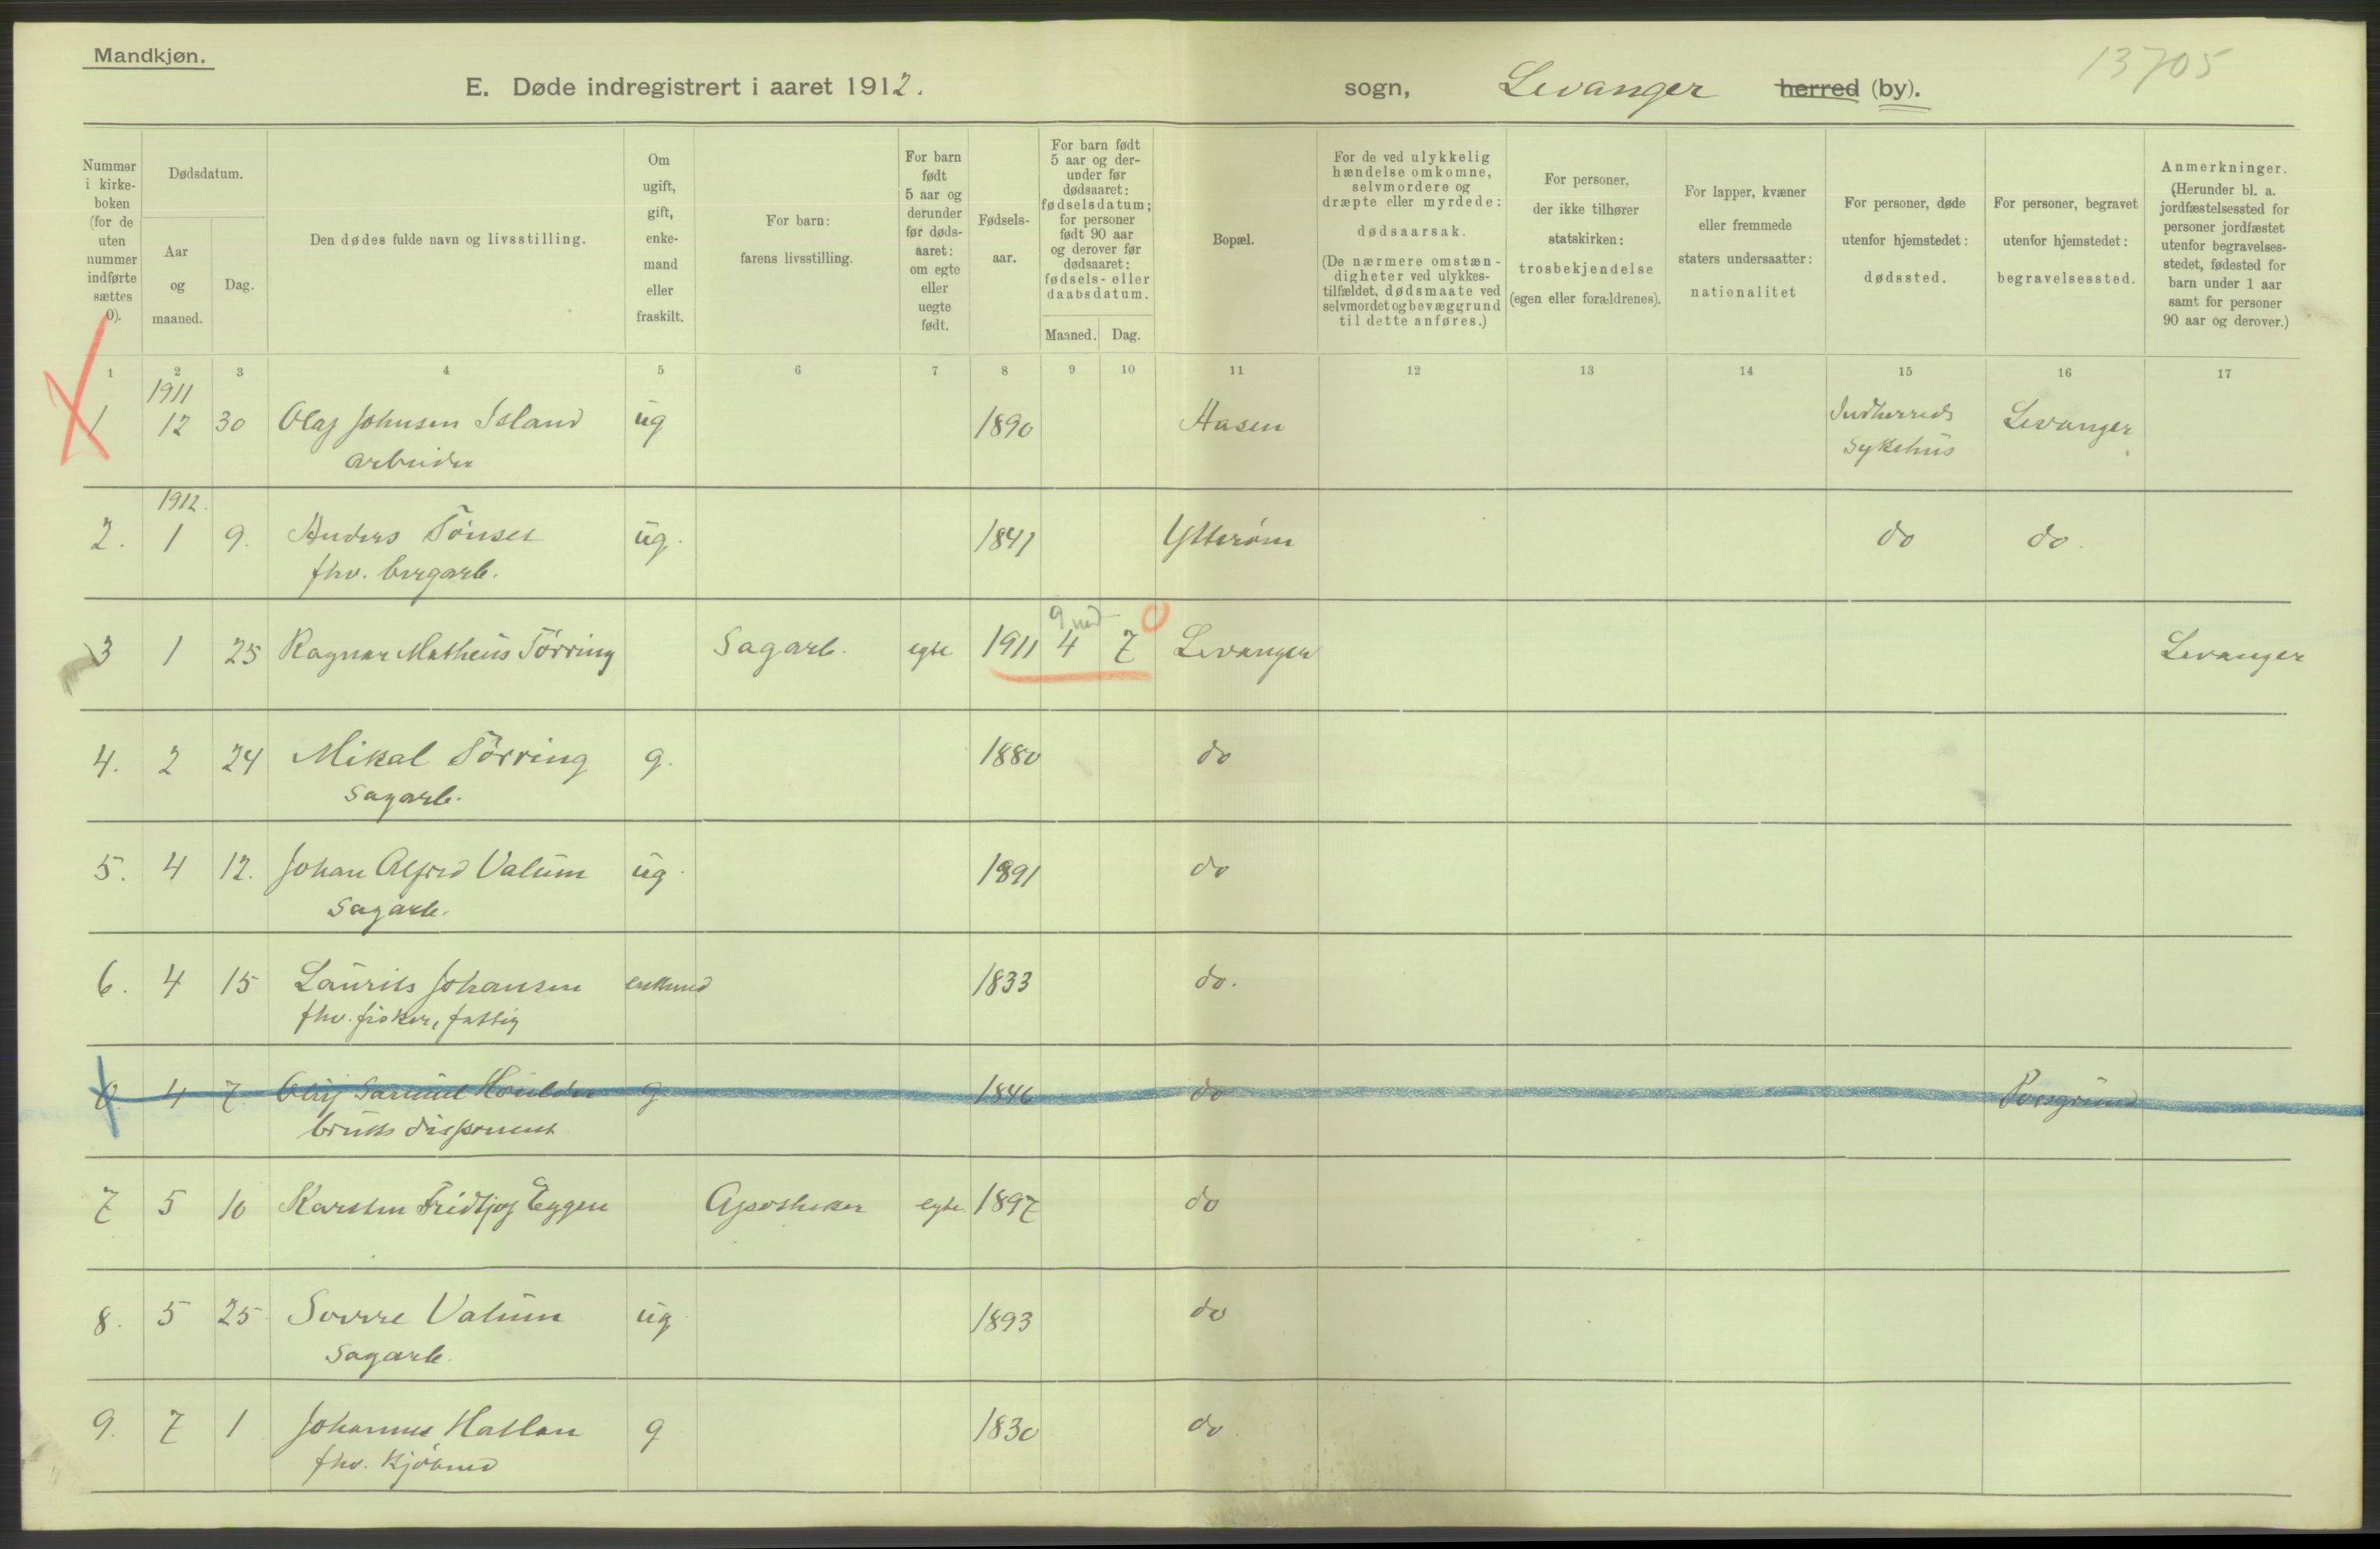 Mandkjøn.
13705
E. Døde indregistrert i aaret 1912. sogn, Levanger herred (by).
Nummer i kirke-boken (for de uten nummer indførte sættes 0).
Dødsdatum.
Aar og maaned.
Dag.
Den dødes fulde navn og livsstilling.
Om ugift, gift, enke-mand eller fraskilt.
For barn: farens livsstilling.
For barn født 5 aar og derunder før døds-aaret: om egte eller uegte født.
Fødsels-aar.
For barn født 5 aar og der-under før dødsaaret: fødselsdatum; for personer født 90 aar og derover før dødsaaret: fødsels- eller daabsdatum.
Maaned. Dag.
Bopæl.
For de ved ulykkelig hændelse omkomne, selvmordere og dræpte eller myrdede: dødsaarsak. (De nærmere omstæn-digheter ved ulykkes-tilfældet, dødsmaate ved selvmordet og bevæggrund til dette anføres.)
For personer, der ikke tilhører statskirken: trosbekjendelse (egen eller forældrenes).
For lapper, kvæner eller fremmede staters undersaatter: nationalitet
For personer, døde utenfor hjemstedet: dødssted.
For personer, begravet utenfor hjemstedet: begravelsessted.
Anmerkninger. (Herunder bl. a. jordfæstelsessted for personer jordfæstet utenfor begravelses-stedet, fødested for barn under 1 aar samt for personer 90 aar og derover.)
1 2 3 4 5 6 7 8 9 10 11 12 13 14 15 16 17
1911
1 12 30 Olaf Johnsen Island ug 1890 Aasen Indherreds Levanger
arbeider Sykehus
1912.
2. 1 9. Anders Tønset ug. 1841 Ytterøen do do.
fhv. bergarb.
9 md
3 1 25 Ragnar Matheus Tørring Sagarb. egte 1911 4 7 Levanger Levanger
4. 2 24 Mikal Tørring g. 1880 do
Sagarb.
5. 4 12. Johan Alfred Valum ug. 1891 do
Sagarb.
6. 4 15 Laurits Johansen enkemd 1833 do.
fhv. fisker, fattig
0. 4 7 Oluf Samuel Houlder g 1846 do Porsgrund
bruks disponent
7 5 10 Karsten Fridtjof Eggen Apotheker egte 1897 do
8. 5 25 Sverre Valum ug. 1893 do
Sagarb.
9. 7 1 Johannes Hallan g 1830 do
fhv. Kjøbmd